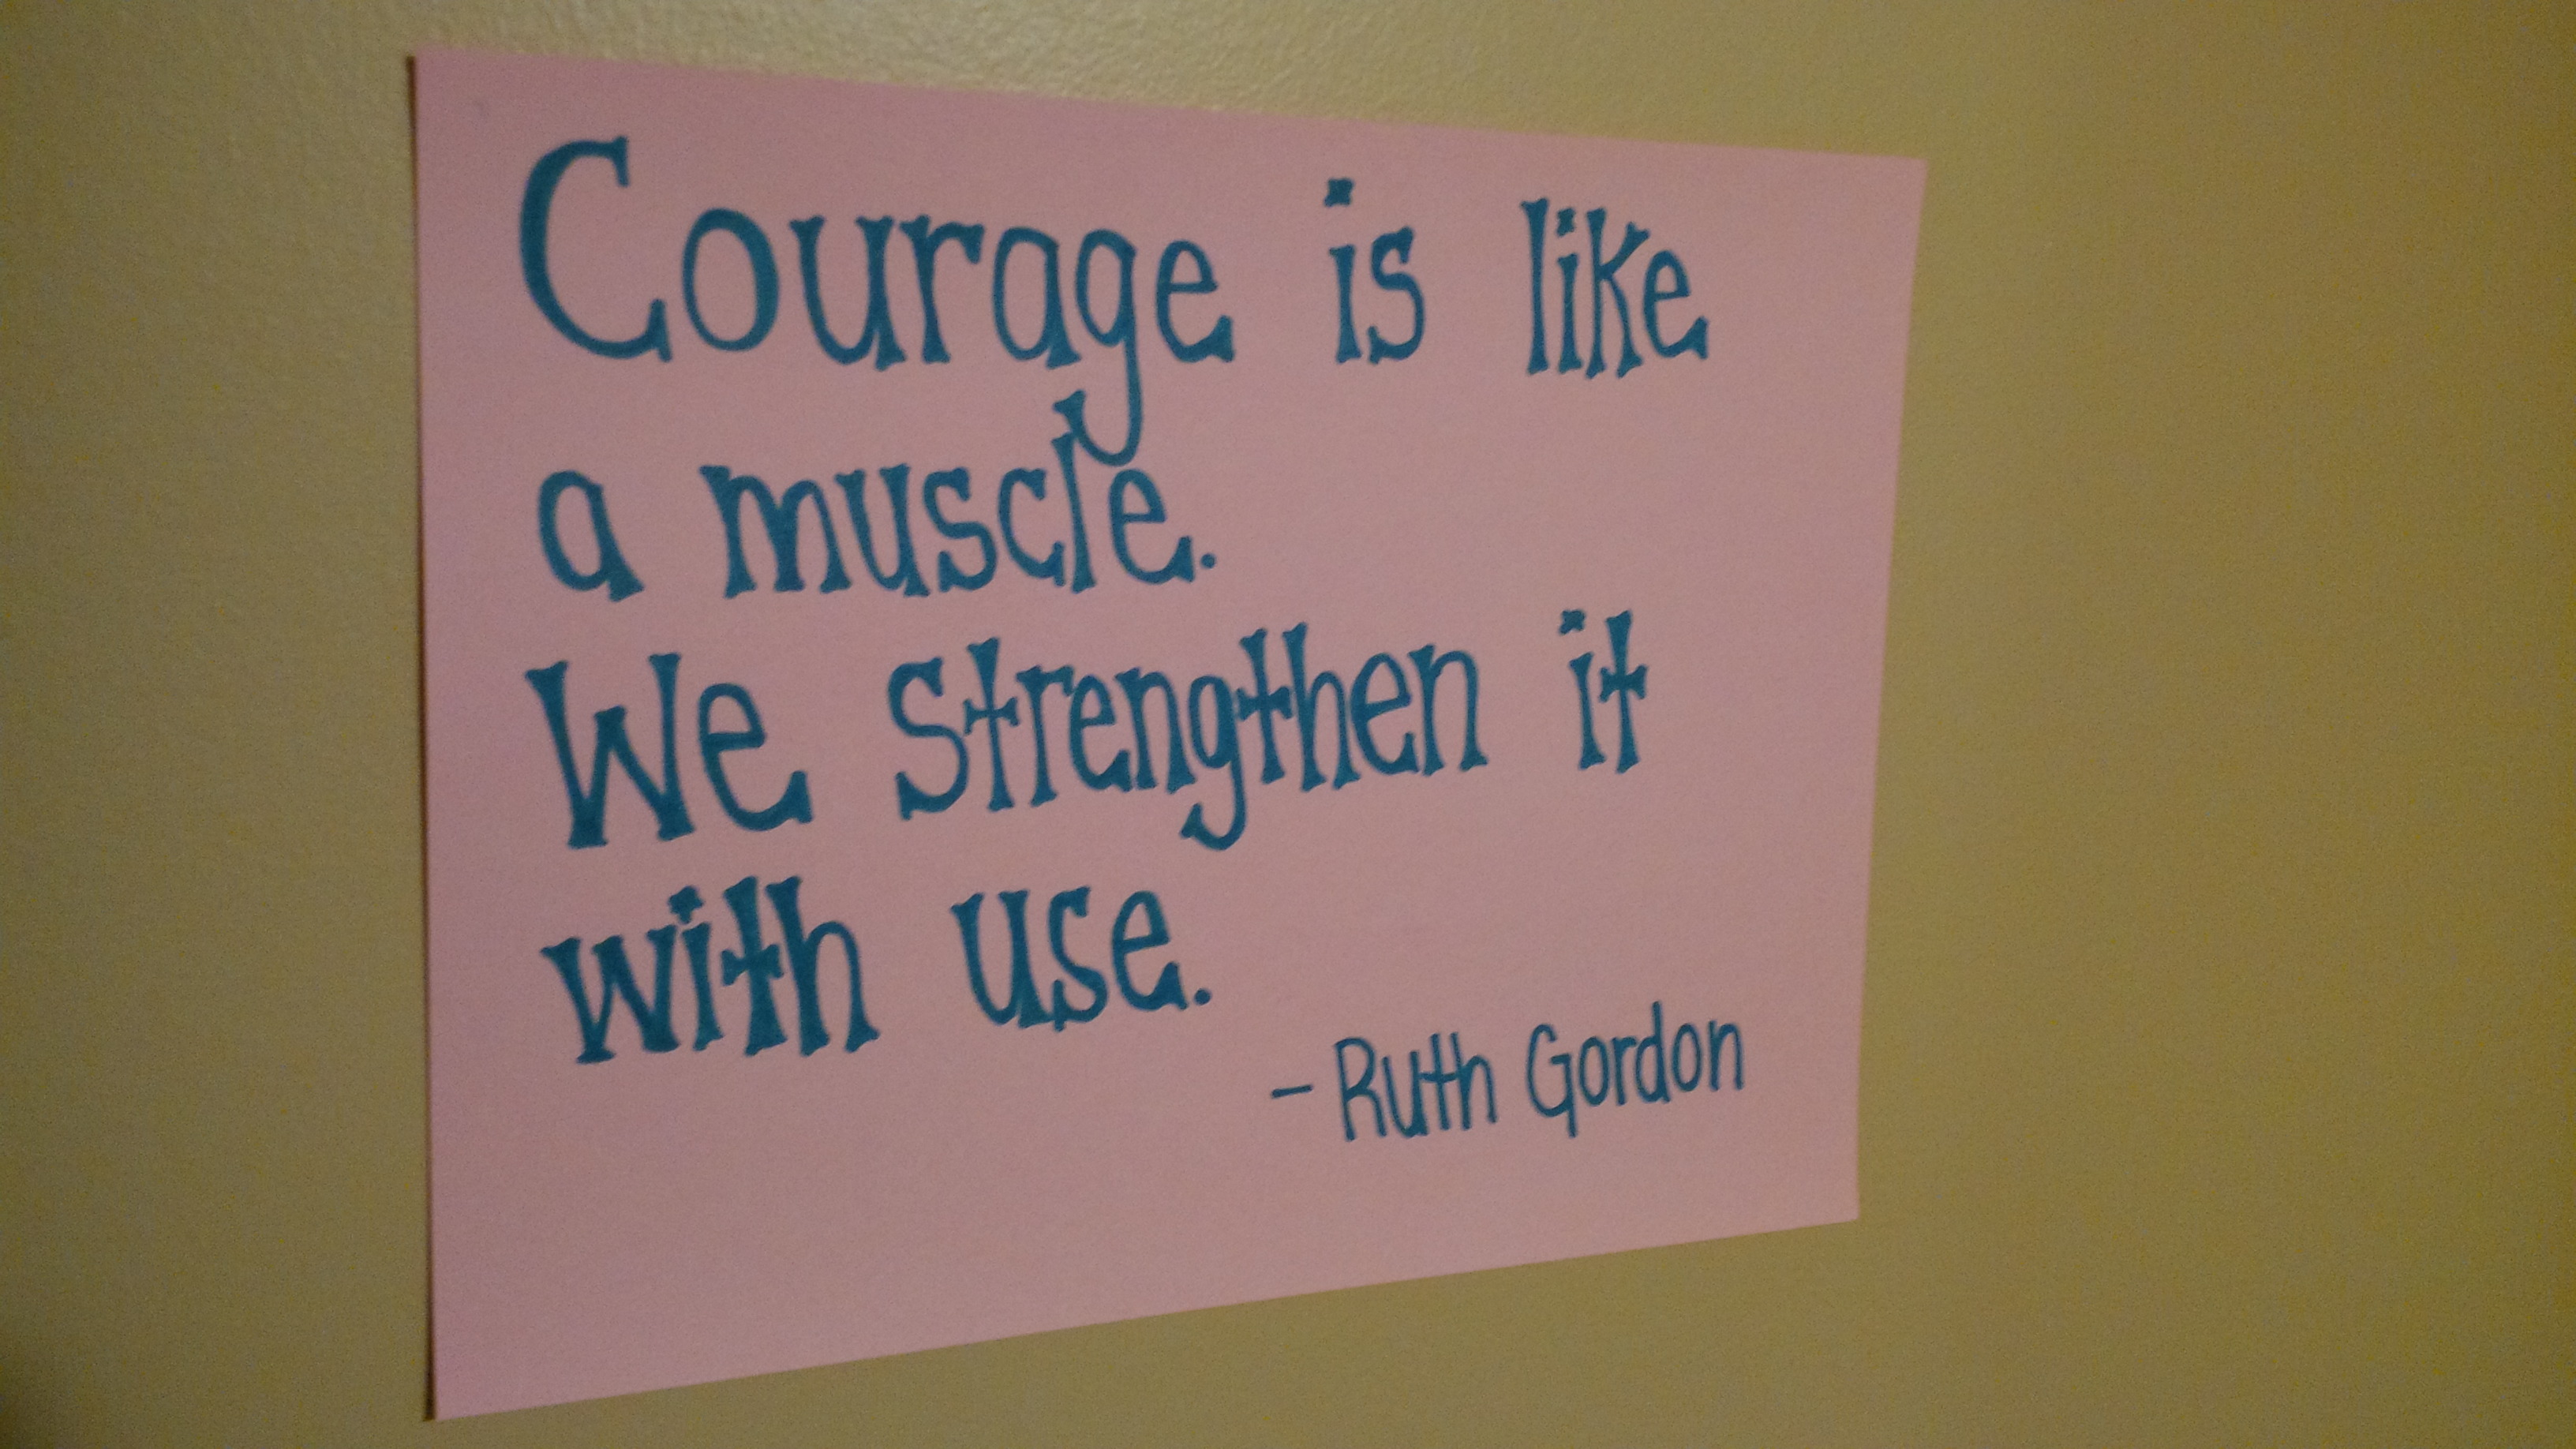 Courage is like
a muscle.
We strengthen it
with use.
- Ruth Gordon